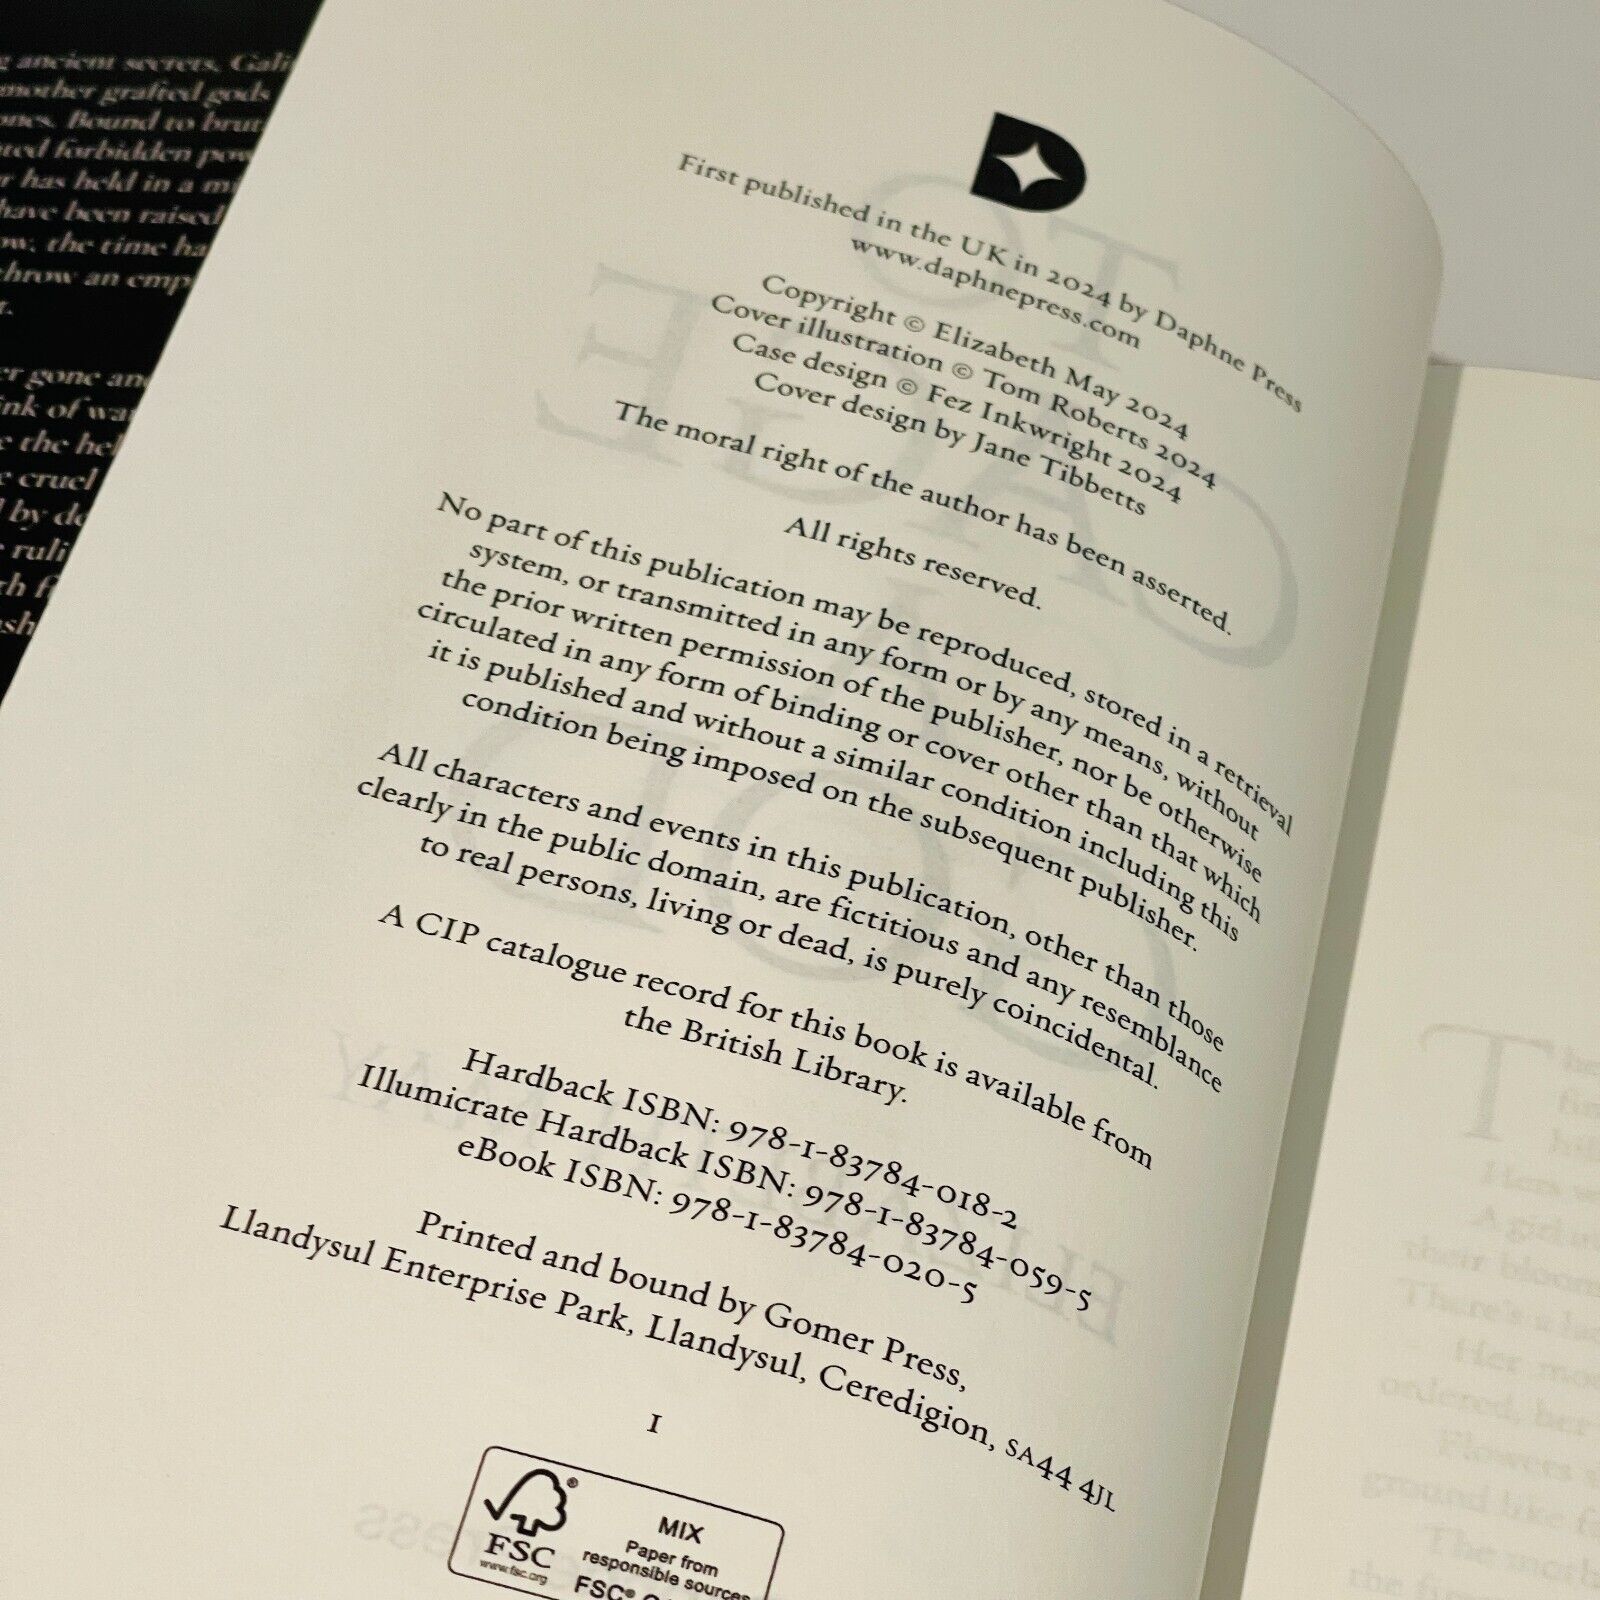 ancient secrets. Gali
mother grafted gods
ones. Bound to brut
forbidden pow
has held in a m
have been raised
the time ha
throw an emp
gone an
ink of wa
the hel
cruel
by de
ruli
First published in the UK in 2024 by Daphne Press
www.daphnepress.com
Copyright © Elizabeth May 2024
Cover illustration © Tom Roberts 2024
Case design © Fez Inkwright 2024
Cover design by Jane Tibbetts
The moral right of the author has been asserted.
All rights reserved.
No part of this publication may be reproduced, stored in a retrieval
system, or transmitted in any form or by any means, without
the prior written permission of the publisher, nor be otherwise
circulated in any form of binding or cover other than that which
it is published and without a similar condition including this
condition being imposed on the subsequent publisher.
All characters and events in this publication, other than those
clearly in the public domain, are fictitious and any resemblance
to real persons, living or dead, is purely coincidental.
A CIP catalogue record for this book is available from
the British Library.
Hardback ISBN: 978-1-83784-018-2
Illumicrate Hardback ISBN: 978-1-83784-059-5
eBook ISBN: 978-1-83784-020-5
Printed and bound by Gomer Press,
Llandysul Enterprise Park, Llandysul, Ceredigion, SA44 4JL
1
FSC
www.fsc.org
MIX
Paper from
responsible sources
FSC®
Hers
A girl
their bloom
There's a
Her mo
ordered, her
Flowers
ground like
The moth
the